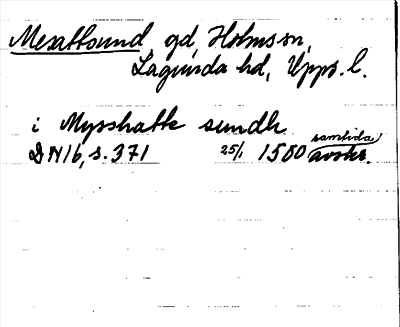 Mexattsund, gd, Holms sn,
Lagunda hd, Upps. l.
i Mysshatte sundh
DN 16, s. 371 25/1 1500 samtida avskr.